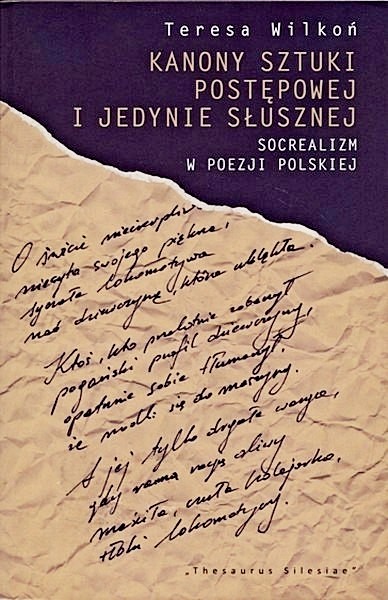 Teresa Wilkoń
KANONY SZTUKI
POSTĘPOWEJ
I JEDYNIE SŁUSZNEJ
SOCREALIZM
W POEZJI POLSKIEJ
O świcie niecierpliw
niesyta swojego piękna,
sycząca lokomotywa
nad dziewczyną, która uklękła.
Ktoś, kto przelotnie zobaczył
pogański profil dziewczyny,
opatrznie sobie tłumaczył,
że modli się do maszyny.
A jej tylko drgały wargi,
gdy ranną rosą oliwy
maściła, czuła kolejarka,
tłoki lokomotywy.
„Thesaurus Silesiae"